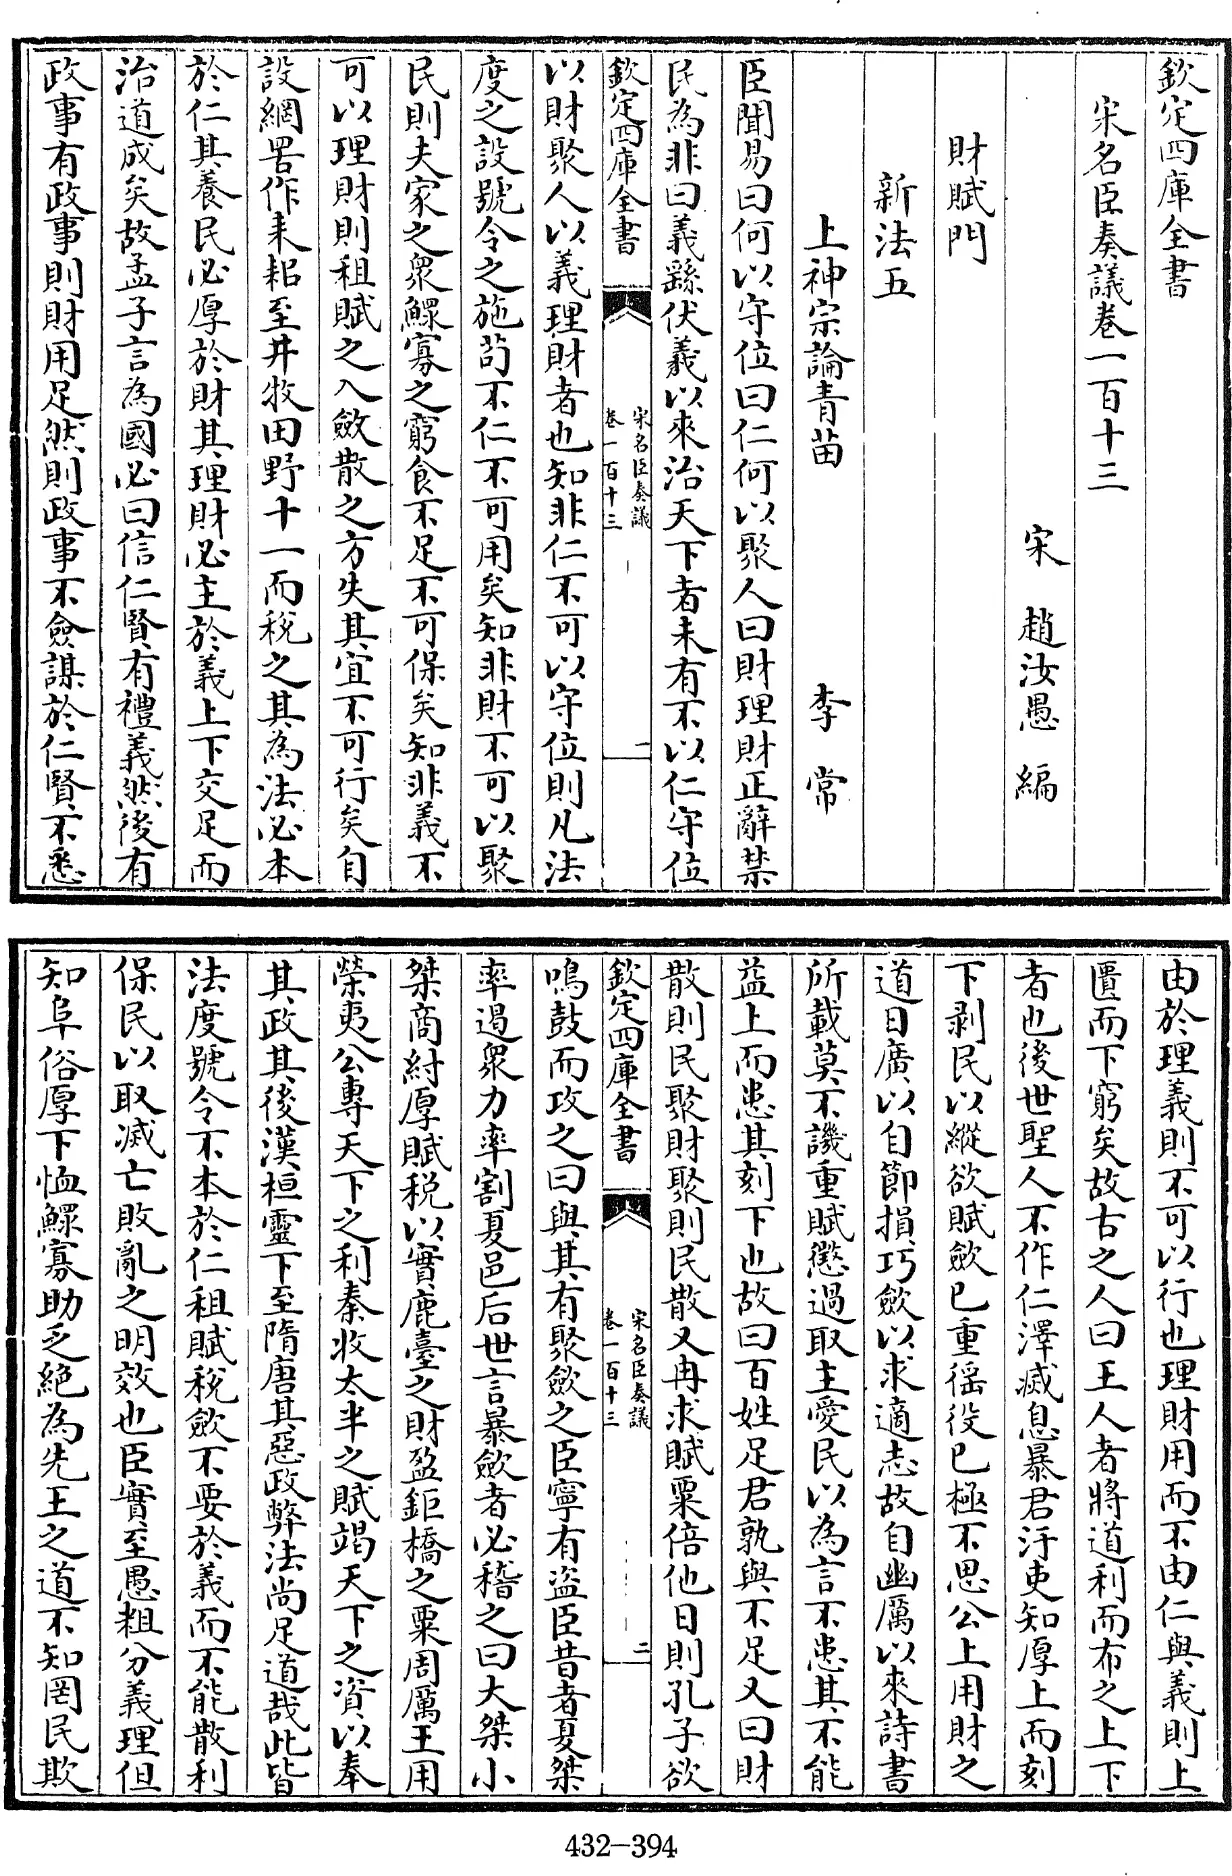 欽定四庫全書
宋名臣奏議卷一百十三
宋　趙汝愚　編
財賦門
新法五
上神宗論青苗　李　常
臣聞易曰何以守位曰仁何以聚人曰財理財正辭禁
民為非曰義繇伏羲以來治天下者未有不以仁守位
欽定四庫全書
宋名臣奏議
卷一百十三
一
以財聚人以義理財者也知非仁不可以守位則凡法
度之設號令之施苟不仁不可用矣知非財不可以聚
民則夫家之衆鰥寡之窮食不足不可保矣知非義不
可以理財則租賦之入斂散之方失其宜不可行矣自
設網罟作耒耜至井牧田野十一而稅之其為法必本
於仁其養民必厚於財其理財必主於義上下交足而
治道成矣故孟子言為國必曰信仁賢有禮義然後有
政事有政事則財用足然則政事不僉謀於仁賢不悉
由於理義則不可以行也理財用而不由仁與義則上
匱而下窮矣故古之人曰王人者將道利而布之上下
者也後世聖人不作仁澤滅息暴君汙吏知厚上而刻
下剥民以縱欲賦斂已重徭役已極不思公上用財之
道日廣以自節損巧斂以求適志故自幽厲以來詩書
所載莫不譏重賦懲過取主愛民以為言不患其不能
益上而患其刻下也故曰百姓足君孰與不足又曰財
散則民聚財聚則民散又冉求賦粟倍他日則孔子欲
欽定四庫全書
宋名臣奏議
卷一百十三
二
鳴鼓而攻之曰與其有聚斂之臣寧有盗臣昔者夏桀
率遏衆力率割夏邑后世言暴斂者必稽之曰大桀小
桀商紂厚賦稅以實鹿臺之財盈鉅橋之粟周厲王用
榮夷公專天下之利秦收太半之賦竭天下之資以奉
其政其後漢桓靈下至隋唐其惡政弊法尚足道哉此皆
法度號令不本於仁租賦稅斂不要於義而不能散利
保民以取滅亡敗亂之明效也臣實至愚粗分義理但
知阜俗厚下恤鰥寡助乏絶為先王之道不知罔民欺
432-394